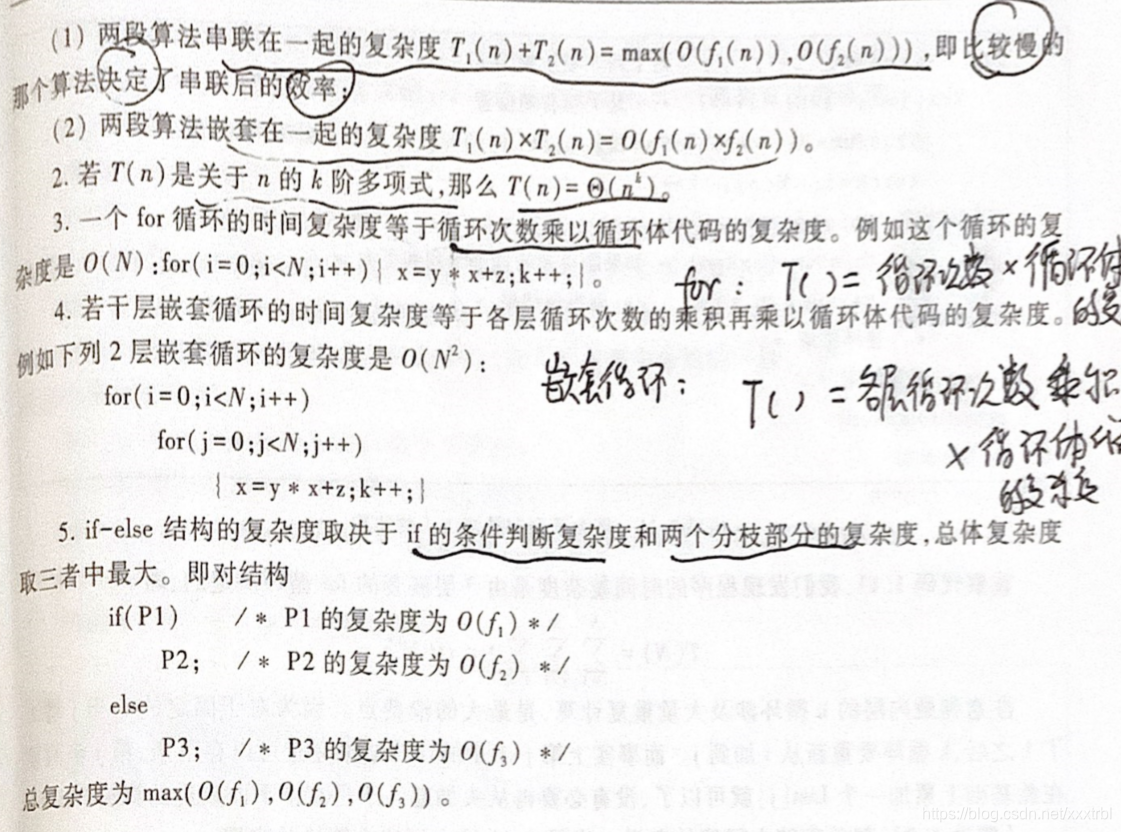 (1) 两段算法串联在一起的复杂度 T₁(n)+T₂(n)= max(O(f₁(n)),O(f₂(n))),即比较慢的
那个算法决定了串联后的效率;
(2) 两段算法嵌套在一起的复杂度 T₁(n)×T₂(n)= O(f₁(n)×f₂(n))。
2. 若 T(n)是关于 n 的 k 阶多项式,那么 T(n)= Θ(nᵏ)。
3. 一个 for 循环的时间复杂度等于循环次数乘以循环体代码的复杂度。例如这个循环的复
杂度是 O(N):for( i=0;i<N;i++) { x=y * x+z;k++;}。
for: T( )= 循环次数 × 循环体
4. 若干层嵌套循环的时间复杂度等于各层循环次数的乘积再乘以循环体代码的复杂度。
的复
例如下列 2 层嵌套循环的复杂度是 O(N²):
嵌套循环: T( ) = 各层循环次数 乘积
for( i=0;i<N;i++)
× 循环体
for( j=0;j<N;j++)
{ x=y * x+z;k++;}
5. if-else 结构的复杂度取决于 if 的条件判断复杂度和两个分枝部分的复杂度,总体复杂度
取三者中最大。即对结构
if( P1) /* P1 的复杂度为 O(f₁) */
P2; /* P2 的复杂度为 O(f₂) */
else
P3; /* P3 的复杂度为 O(f₃) */
总复杂度为 max(O(f₁),O(f₂),O(f₃))。
https://blog.csdn.net/xxxtrbl